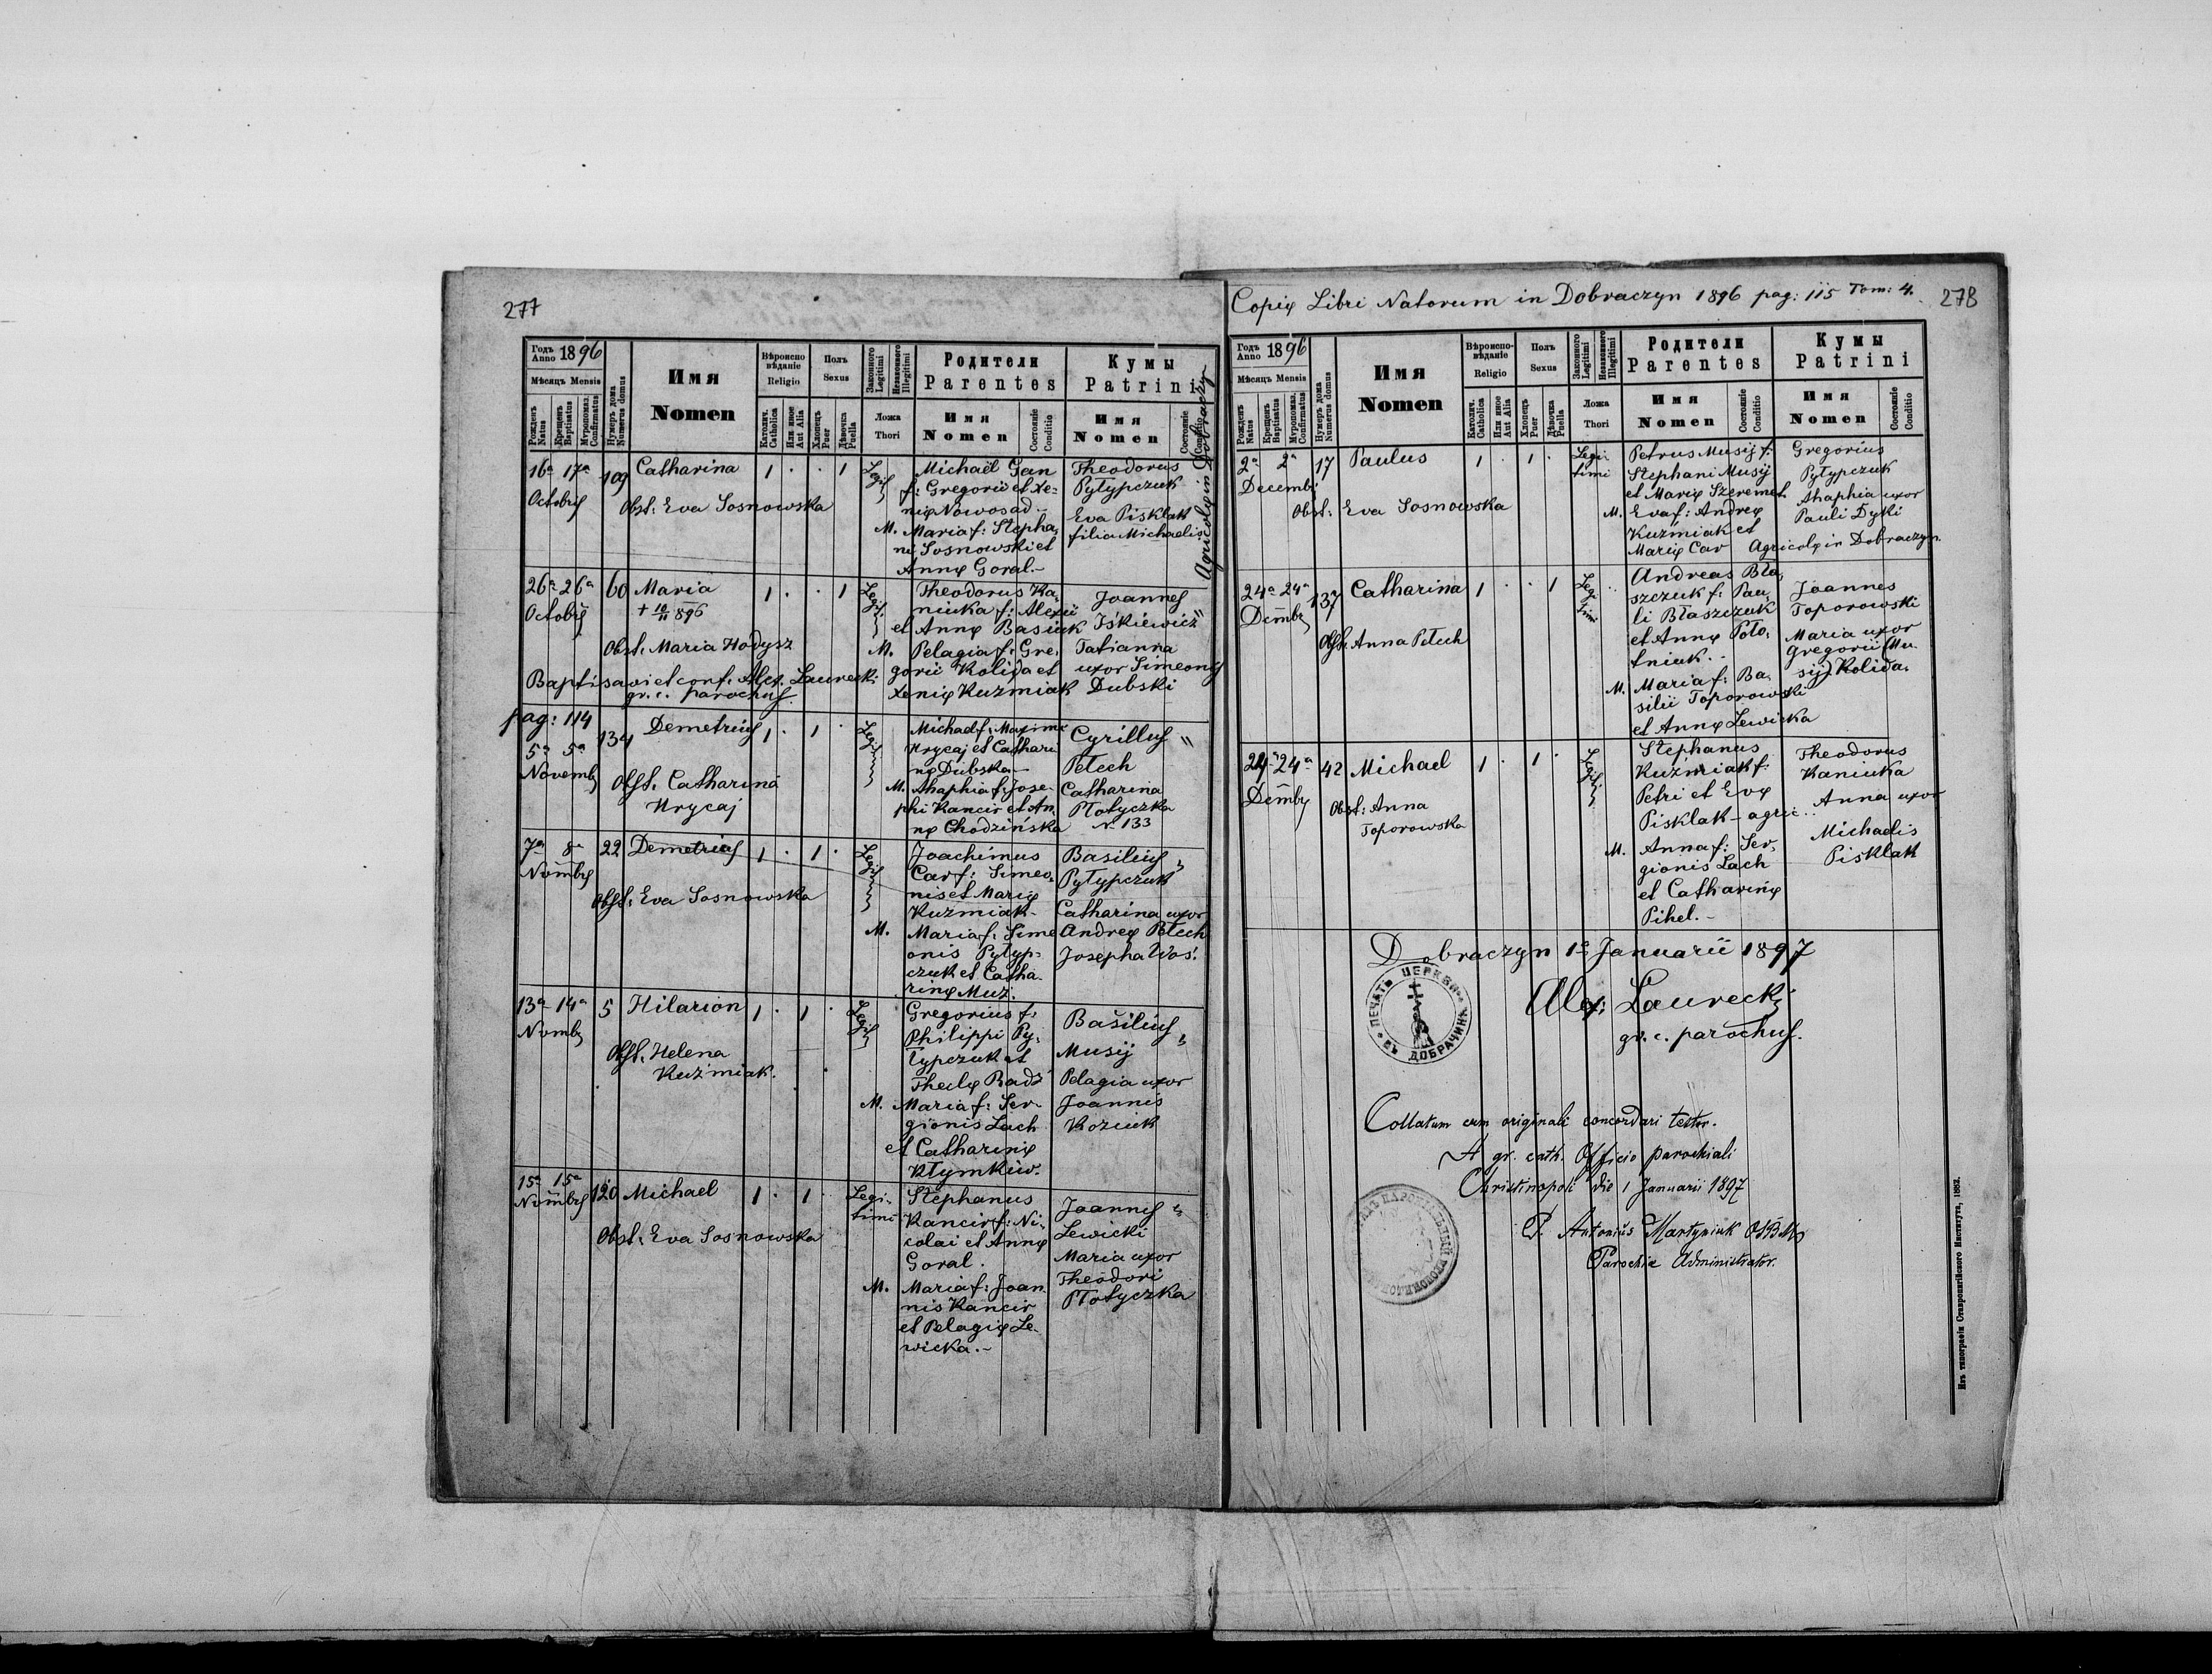 277
Годъ Anno 1896
Мѣсяцъ Mensis
Рожденъ Natus
Крещенъ Baptisatus
Мѵропомаз. Confirmatus
Нумеръ дома Numerus domus
Имя
Nomen
Вѣроисповѣданіе Religio
Католич. Catholica
Или иное Aut Alia
Полъ Sexus
Хлопецъ Puer
Дѣвочка Puella
Законного Legitimi
Незаконного Illegitimi
Ложа Thori
Родители
Parentes
Имя Nomen
Состояніе Conditio
Кумы
Patrini
Имя Nomen
Состояніе Conditio
Agricolę in Dobraczyn
16a 17a
Octobris
109
Catharina
1 . . 1
Legit
Obst: Eva Sosnowska
Michaël Gan
f: Gregorii et Xe=
nię Nowosad -
M. Maria f: Stepha,
ni Sosnowski et
Annę Goral.-
Theodorus
Pyłypczuk
Eva Pisklak
filia Michaelis
26a 26a
Octobris
60
Maria
+ 10/11 896
1 . . 1
Legit.
Obst. Maria Hodysz
Baptisavi et conf. Alex. Laurecki
gr. c. parochus.
Theodorus Ka,
niuka f: Alexii
et Annę Basiuk
M. Pelagia f: Gre,
gorii Kolida et
Xenię Kuźmiak
Joannes
Iśkiewicz "
Tatianna
uxor Simeonis
Dubski
pag: 114
5a 5a
Novembr
134
Demetrius
1 . 1 .
Legit
Obst. Catharina
Hrycaj
Michael f: Maximi
Hrycaj et Cathari
nę Dubska -
M. Ahaphia f: Jose-
phi Kancir et An,
nę Chodzińska
Cyrillus "
Petech
Catharina
Płotyczka
N. 133
7a 8a
Nombris
22
Demetrius
1 . 1 .
Legit
Obst. Eva Sosnowska
Joachimus
Car f: Simeo,
nis et Marię
Kuźmiak -
M. Maria f: Sime
onis Pyłyp=
czuk et Catha-
rinę Muz.
Basilius "
Pyłypczuk
Catharina uxor
Andreę Petech
Josepha Woś.
13a 14a
Nombr
5
Hilarion
1 . 1 .
Legit
Obst. Helena
Kuźmiak.
Gregorius f:
Philippi Py,
łypczuk et
Theclę Badź
M. Maria f: Ser-
gionis Lach
et Catharinę
Kłymkiw.
Basilius "
Musij
Pelagia uxor
Joannis
Koziuk
15a 15a
Nombris
120
Michael
1 . 1 .
Legi-
timi
Obst. Eva Sosnowska
Stephanus
Kancir f: Ni-
colai et Annę
Goral.
M. Maria f: Joan
nis Kancir
et Pelagię Le-
wicka.-
Joannes "
Lewicki
Maria uxor
Theodori
Płotyczka
Copię Libri Natorum in Dobraczyn 1896 pag: 115 Tom: 4.
278
Годъ Anno 1896
Мѣсяцъ Mensis
Рожденъ Natus
Крещенъ Baptisatus
Мѵропомаз. Confirmatus
Нумеръ дома Numerus domus
Имя
Nomen
Вѣроисповѣданіе Religio
Католич. Catholica
Или иное Aut Alia
Полъ Sexus
Хлопецъ Puer
Дѣвочка Puella
Законного Legitimi
Незаконного Illegitimi
Ложа Thori
Родители
Parentes
Имя Nomen
Состояніе Conditio
Кумы
Patrini
Имя Nomen
Состояніе Conditio
2a 2a
Decembr
17
Paulus
1 . 1 .
Legi-
timi
Obst: Eva Sosnowska
Petrus Musij f:
Stephani Musij
et Marię Szeremet.
M. Eva f: Andreę
Kuźmiak et
Marię Car
Gregorius
Pyłypczuk
Ahaphia uxor
Pauli Dyki
Agricolę in Dobraczyn.
24a 24a
Dembr
137
Catharina
1 . . 1
Legi
timi
Obst. Anna Petech
Andreas Bła,
szczuk f: Pau,
li Błaszczuk
et Annę Poło,
tniuk.-
M. Maria f: Ba,
silii Toporowski
et Annę Lewicka
Joannes
Toporowski
Maria uxor
Gregorii (Mu-
sij) Kolida.
24a 24a
Dembr
42
Michael
1 . 1 .
Legit.
Obst: Anna
Toporowska
Stephanus
Kuźmiak f:
Petri et Evę
Pisklak - agric..
M. Anna f: Ser,
gionis Lach
et Catharinę
Pihel.-
Theodorus
Kaniuka
Anna uxor
Michaelis
Pisklak
Dobraczyn 1a Januarii 1897
ПЕЧАТЬ ЦЕРКВИ
ВЪ ДОБРАЧИНѢ
Alex: Laurecki
gr. c. parochus.
Collatum cum originali concordari testor.
A gr. cath. Officio parochiali
Christinopoli die 1 Januarii 1897
P. Antonius Martyniuk OSBM
Parochiæ Administrator.
Изъ типографіи Ставропигійского Института, 1882.